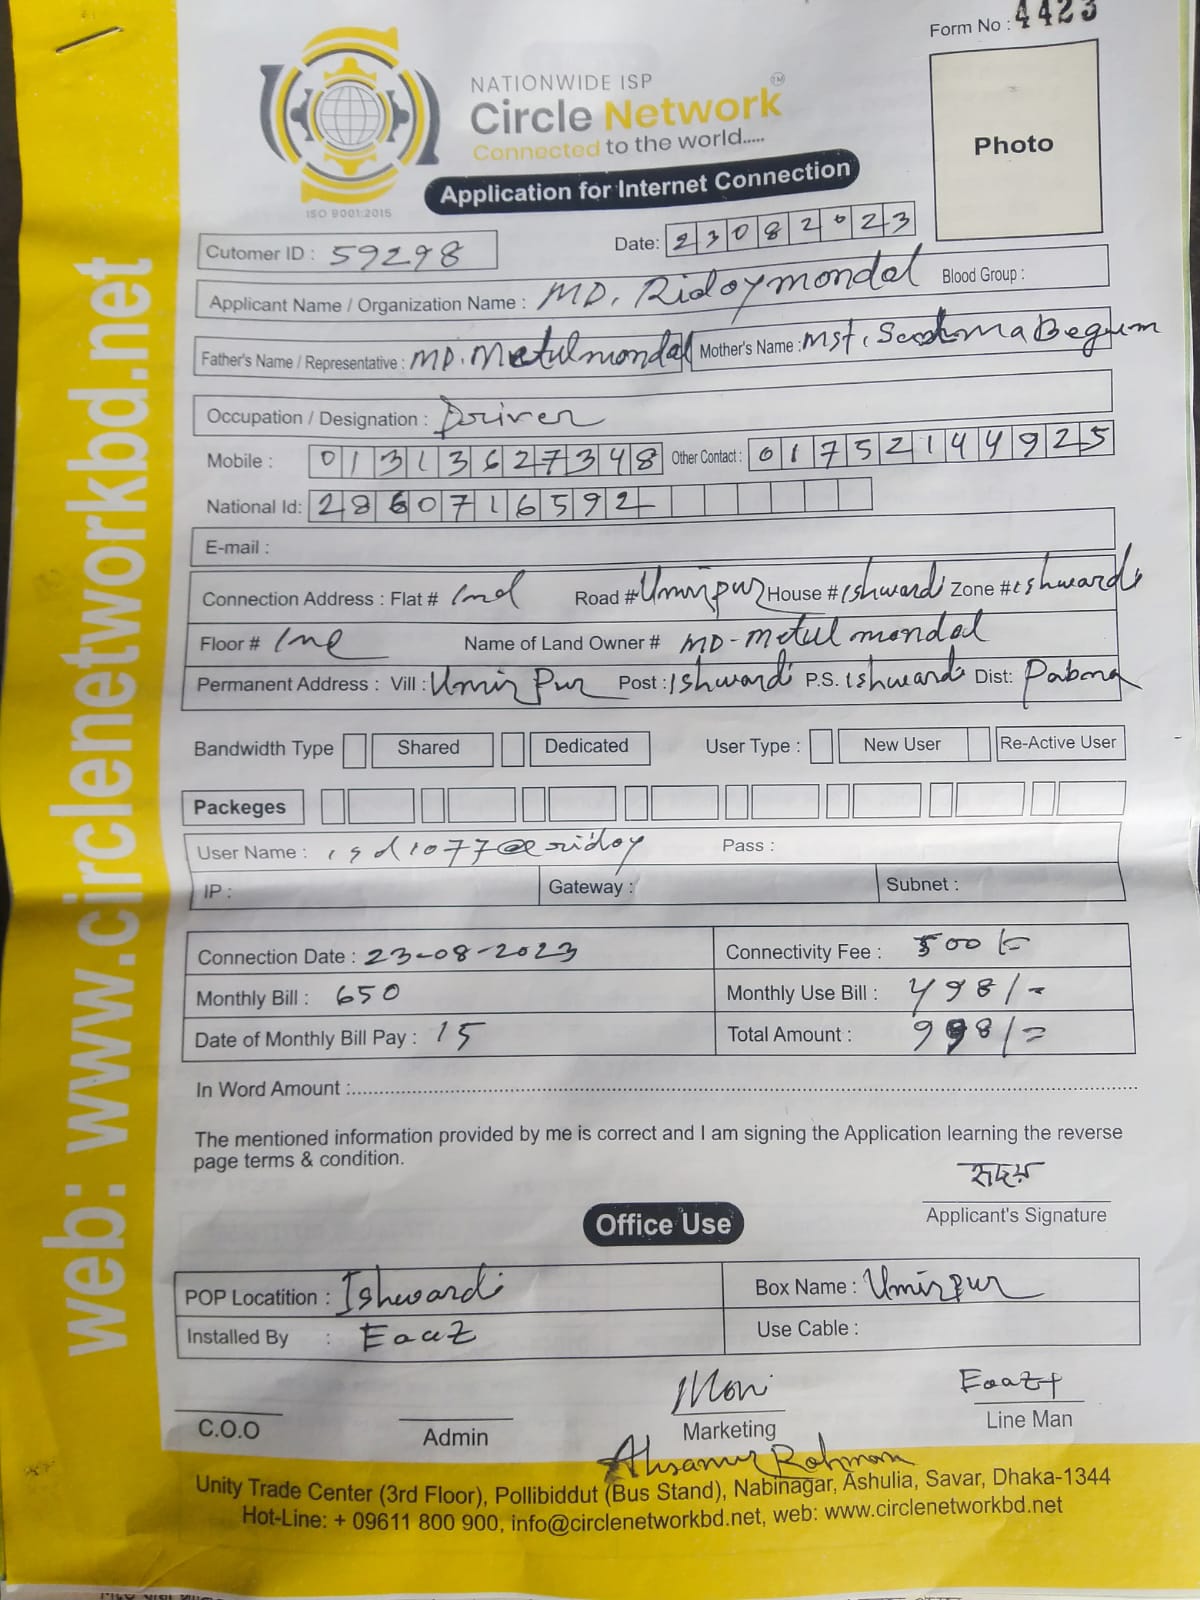 Form No : 4423
NATIONWIDE ISP
Circle Network™
Connected to the world.....
Application for Internet Connection
ISO 9001:2015
Photo
Cutomer ID : 59298
Date: 23082023
Applicant Name / Organization Name : MD. Ridoy mondal Blood Group :
Father's Name / Representative : MD. Metul mondal Mother's Name : Mst. Begum
Occupation / Designation : Driver
Mobile : 01313627348 Other Contact : 01752144925
National Id: 2860716592
E-mail :
Connection Address : Flat # Road # Umirpur House # Ishwardi Zone # Ishwardi
Floor # Name of Land Owner # MD-Metul mondal
Permanent Address : Vill : Umir Pur Post : Ishwardi P.S. Ishwardi Dist: Pabna
Bandwidth Type Shared Dedicated User Type : New User Re-Active User
Packeges
User Name : Pass :
IP : Gateway : Subnet :
Connection Date : 23-08-2023 Connectivity Fee : 500
Monthly Bill : 650 Monthly Use Bill : 498/-
Date of Monthly Bill Pay : 15 Total Amount : 998/=
In Word Amount :
The mentioned information provided by me is correct and I am signing the Application learning the reverse
page terms & condition.
হৃদয়
Applicant's Signature
Office Use
POP Locatition : Ishwardi Box Name : Umirpur
Installed By : Use Cable :
Moni
C.O.O Admin Marketing Line Man
Ahsanur Rahman
Unity Trade Center (3rd Floor), Pollibiddut (Bus Stand), Nabinagar, Ashulia, Savar, Dhaka-1344
Hot-Line: + 09611 800 900, info@circlenetworkbd.net, web: www.circlenetworkbd.net
web: www.circlenetworkbd.net